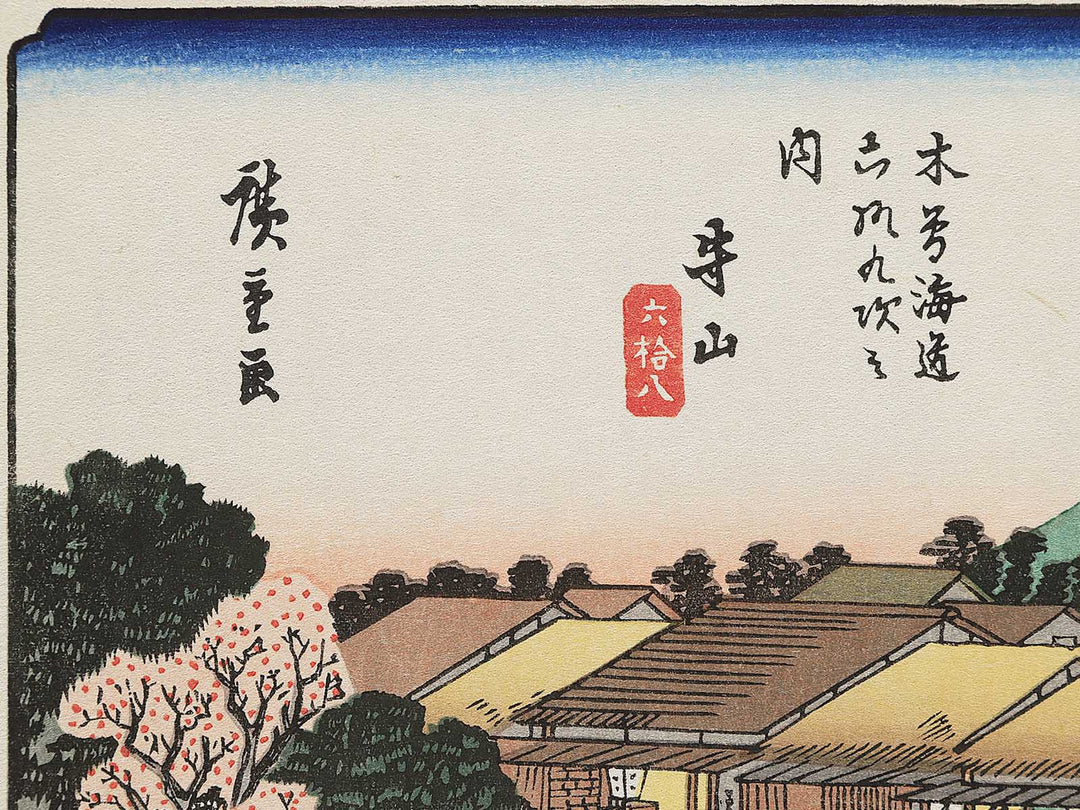 木曽海道
六拾九次之
内
守山
六拾八
廣重画